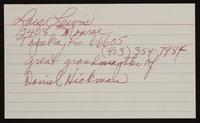 Lois Lewis
2408 Monroe
Topeka, Ks. 66605
(913) 354-7984
great grandmother of
Daniel Hickman